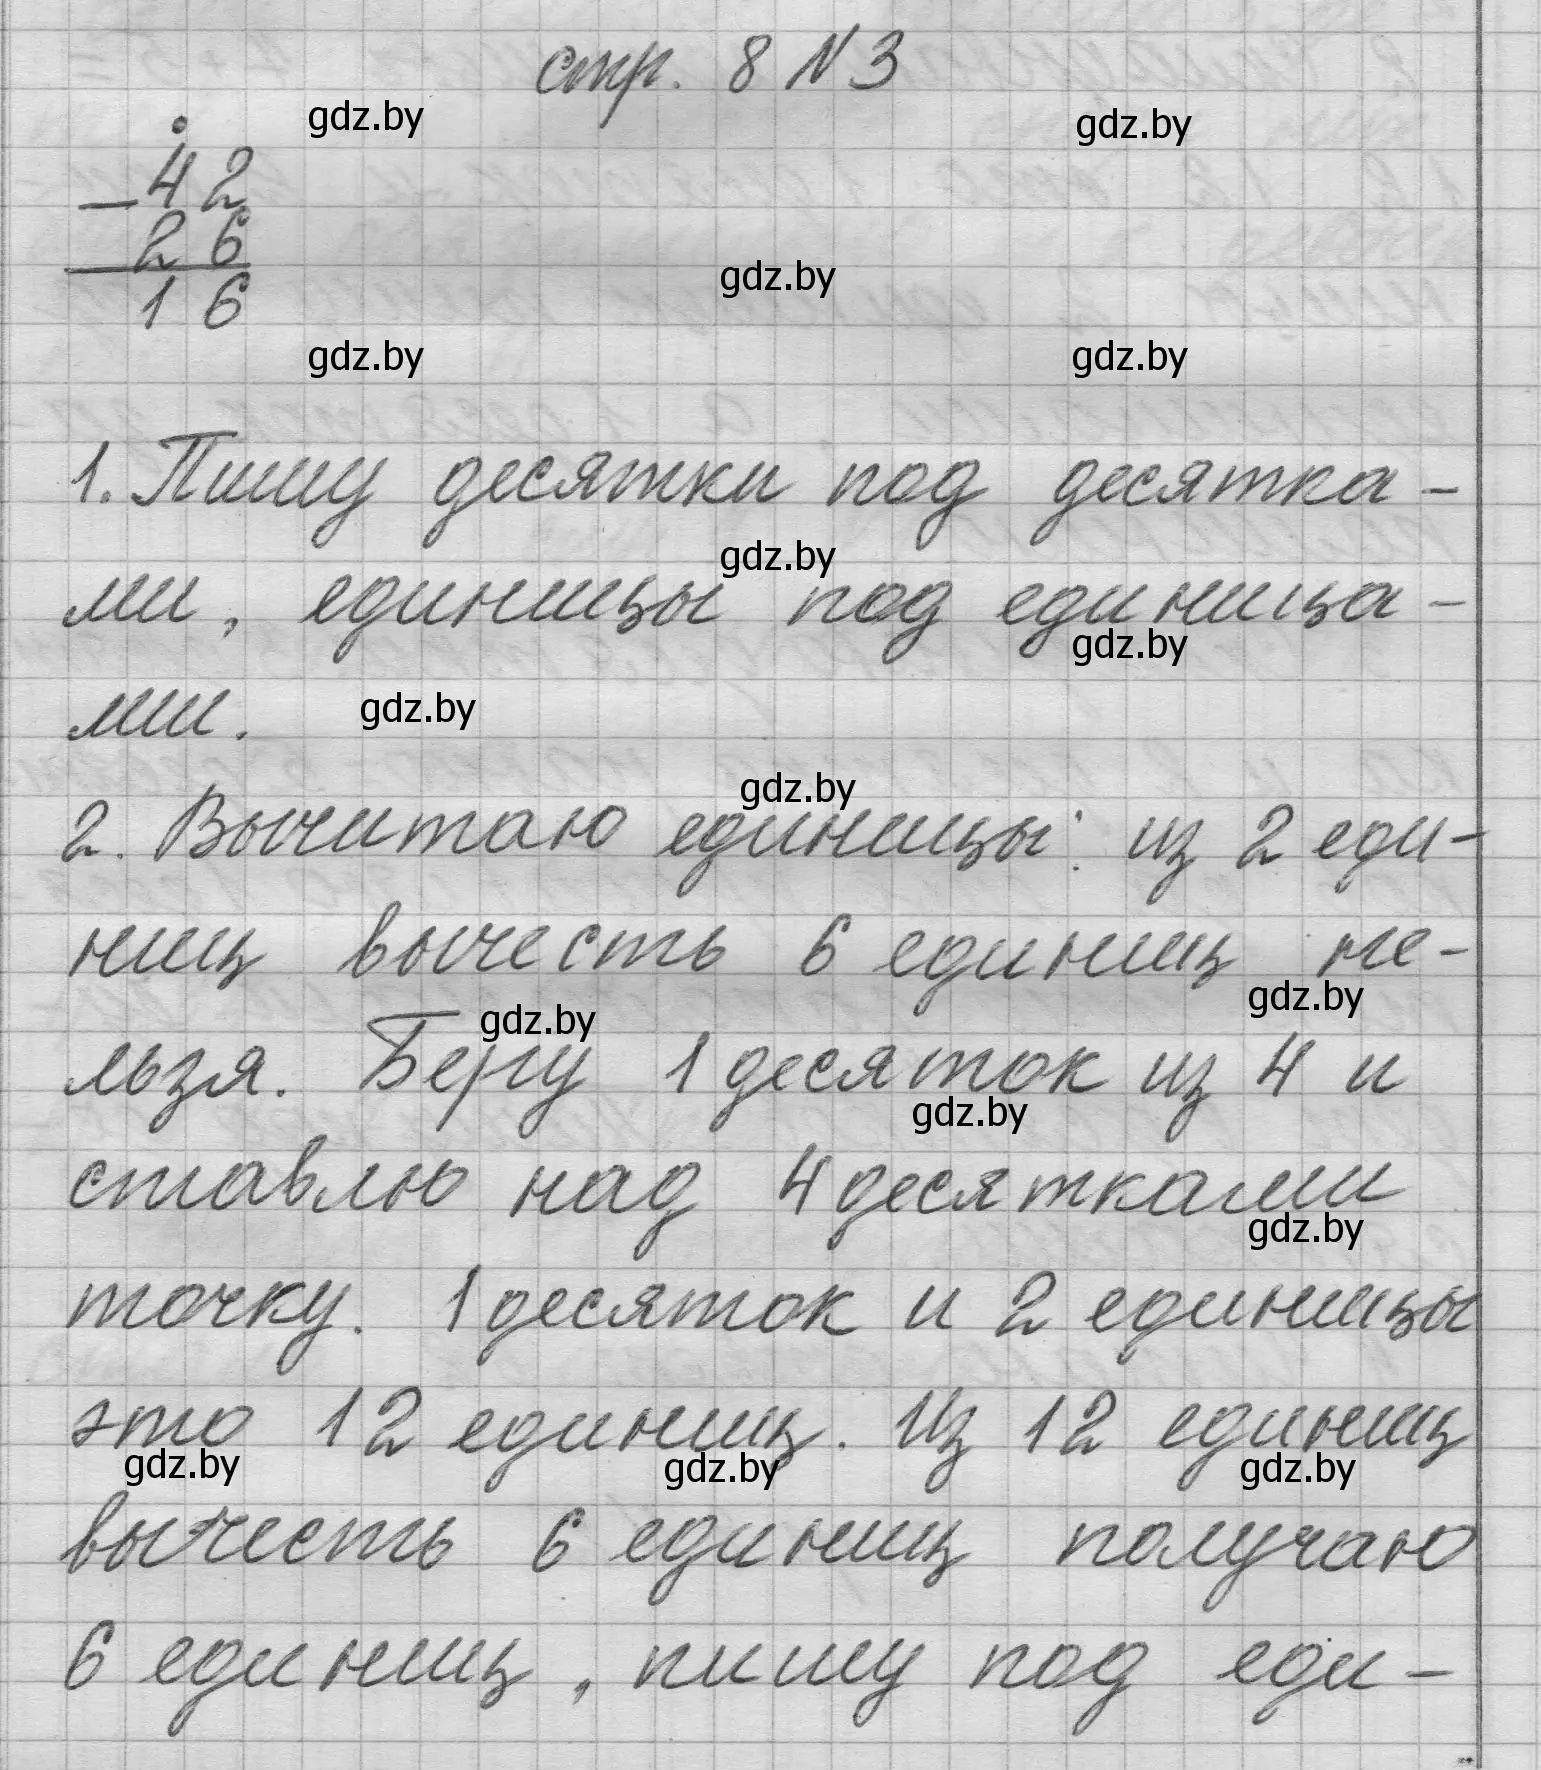 стр. 8 N 3
gdz.by
gdz.by
42
− 26
gdz.by
16
gdz.by
gdz.by
1. Пишу десятки под десятка-
gdz.by
ми, единицы под единица-
gdz.by
ми.
gdz.by
gdz.by
2. Вычитаю единицы: из 2 еди-
ниц вычесть 6 единиц не-
gdz.by
gdz.by
льзя. Беру 1 десяток из 4 и
gdz.by
ставлю над 4 десятками
gdz.by
точку. 1 десяток и 2 единицы
это 12 единиц. Из 12 единиц
gdz.by
gdz.by
gdz.by
вычесть 6 единиц получаю
6 единиц, пишу под еди-